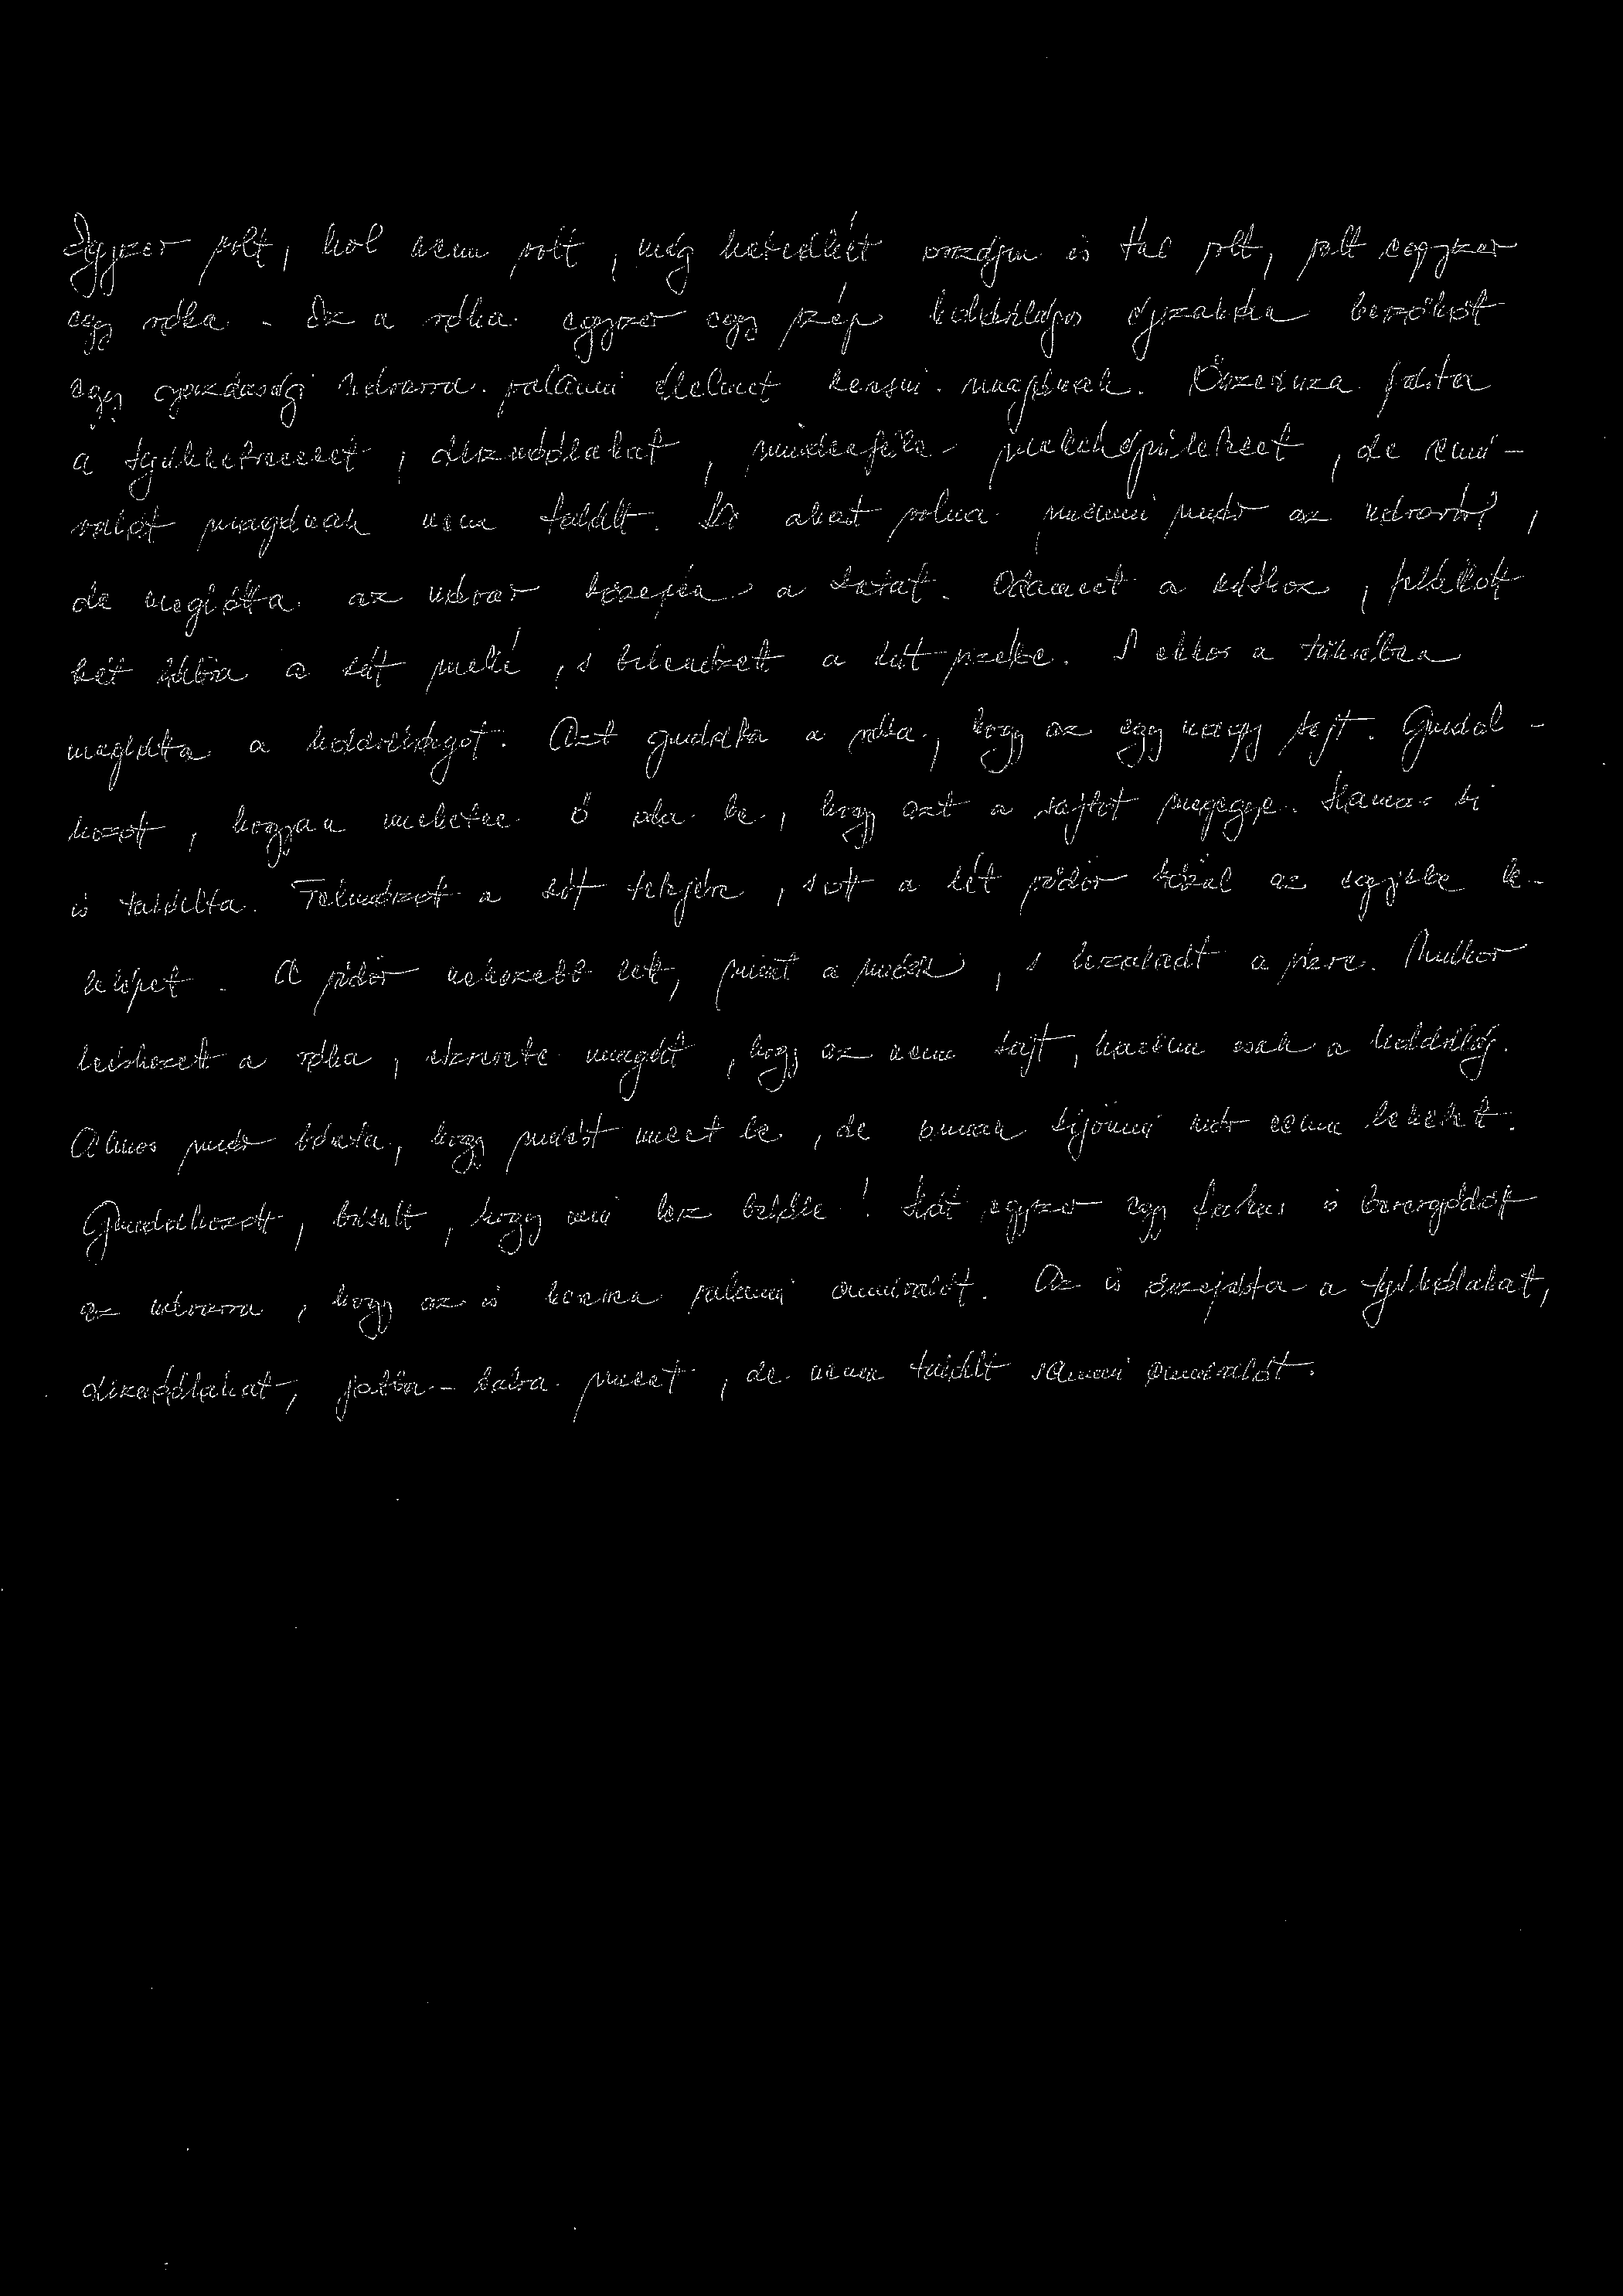 Egyszer volt, hol nem volt, még hetedhét országon is túl volt, volt egyszer
egy róka. Ez a róka egyszer egy szép holdvilágos éjszakán beszökött
egy gazdasági udvarra valami élelmet keresni magának. Összevissza járta
a tyúkketreceket, disznóólakat, mindenféle melléképületeket, de enni-
valót magának nem talált. Ki akart volna menni már az udvarról,
de meglátta az udvar közepén a kutat. Odament a kúthoz, felállott
két lábra a kút mellé, s belenézett a kút vizébe. S akkor a tükrében
meglátta a holdvilágot. Azt gondolta a róka, hogy az egy nagy sajt. Gondol-
kozott, hogyan mehetne ő oda be, hogy azt a sajtot megegye. Hamar ki
is találta. Felmászott a kút tetejére, s ott a két vödör közül az egyikbe be-
lelépett. A vödör nehezebb lett, mint a másik, s leszaladt a vízre. Mikor
leérkezett a róka, észrevette magát, hogy az nem sajt, hanem csak a holdvilág.
Akkor már bánta, hogy miért ment le, de onnan kijönni már nem lehetett.
Gondolkozott, búsult, hogy mi lesz belőle! Hát egyszer egy farkas is bevergődött
az udvarra, hogy az is keresne valami ennivalót. Az is összejárta a tyúkólakat,
disznóólakat, jobbra-balra ment, de nem talált semmi ennivalót.